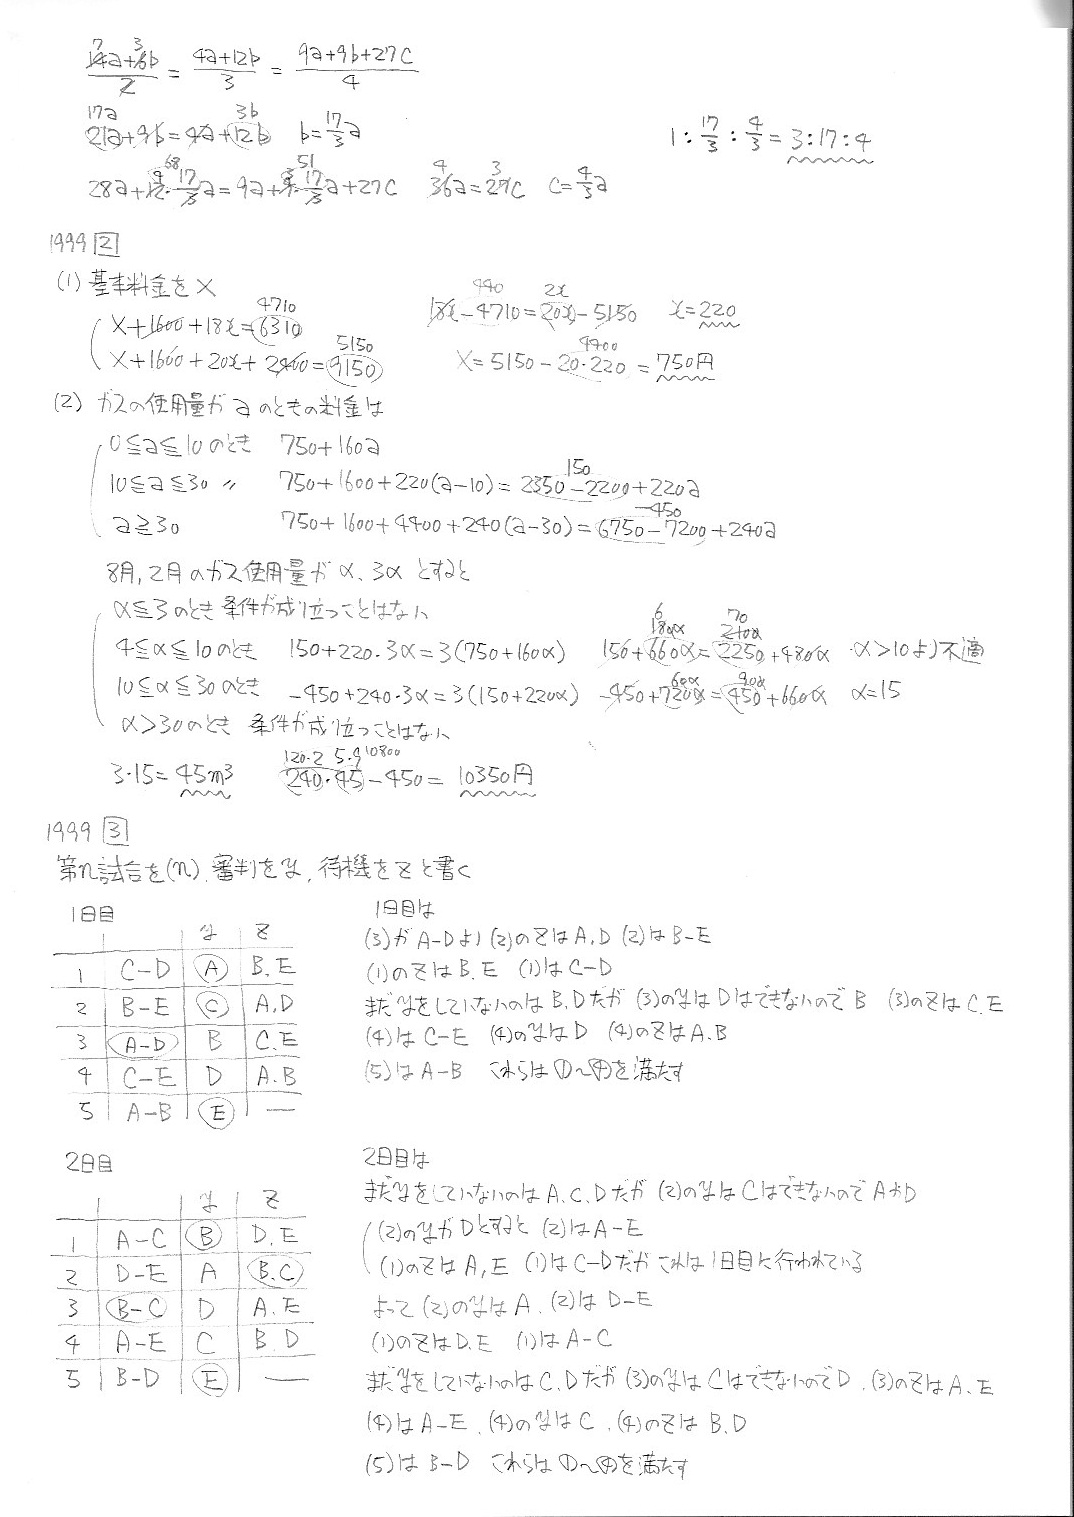 (14a+6b)/2 = (4a+12b)/3 = (9a+9b+27c)/4
7 3
17a 3b
21a+9b=4a+12b b=17/3 a
1:17/3:4/3=3:17:4
68 51
28a+12・17/3 a=9a+9・17/3 a+27c 36a=27c c=4/3 a
4 3
1999 2
(1) 基本料金をX
4710 440 2x
X+1600+18x=6310 18x-4710=20x-5150 x=220
5150 4400
X+1600+20x+2400=9150 X=5150-20・220=750円
(2) ガスの使用量がaのときの料金は
0≦a≦10のとき 750+160a
150
10≦a≦30 〃 750+1600+220(a-10)=2350-2200+220a
-450
a≧30 750+1600+4400+240(a-30)=6750-7200+240a
8月,2月のガス使用量がα、3αとすると
α≦3のとき条件が成り立つことはない
6 70
180α 210α
4≦α≦10のとき 150+220・3α=3(750+160α) 150+660α=2250+480α α>10より不適
60α 90α
10≦α≦30のとき -450+240・3α=3(150+220α) -450+720α=450+660α α=15
α>30のとき 条件が成り立つことはない
120・2 5・9 10800
3・15=45m³ 240・45-450=10350円
1999 3
第n試合を(n)、審判をy、待機をzと書く
1日目
y z
1 C-D A B.E
2 B-E C A.D
3 A-D B C.E
4 C-E D A.B
5 A-B E —
1日目は
(3)がA-Dより(2)のzはA,D (2)はB-E
(1)のzはB,E (1)はC-D
まだyをしていないのはB,Dだが(3)のyはDはできないのでB (3)のzはC,E
(4)はC-E (4)のyはD (4)のzはA,B
(5)はA-B これらは①~④を満たす
2日目
y z
1 A-C B D.E
2 D-E A B.C
3 B-C D A.E
4 A-E C B.D
5 B-D E —
2日目は
まだyをしていないのはA,C,Dだが(2)のyはCはできないのでAかD
(2)のyがDとすると(2)はA-E
(1)のzはA,E (1)はC-Dだがこれは1日目に行われている
よって(2)のyはA、(2)はD-E
(1)のzはD,E (1)はA-C
まだyをしていないのはC,Dだが(3)のyはCはできないのでD、(3)のzはA、E
(4)はA-E、(4)のyはC、(4)のzはB,D
(5)はB-D これらは①~④を満たす